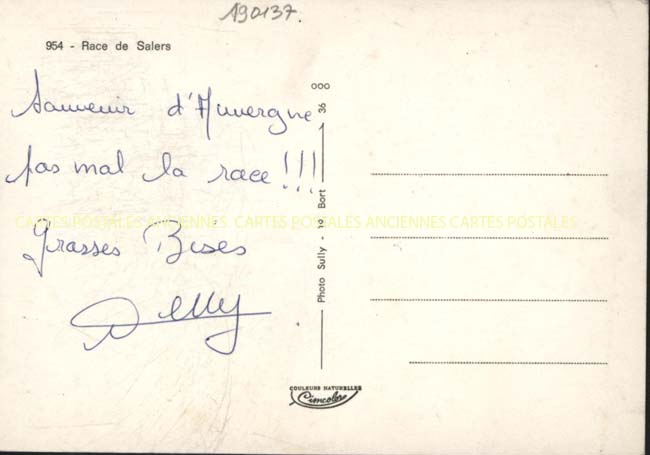 190137.
954 - Race de Salers
Souvenir d'Auvergne
pas mal la race !!!
Grasses Bises
Delly
ooo
Photo Sully - 19 Bort 36
CARTES POSTALES ANCIENNES CARTES POSTALES ANCIENNES CARTES POSTALES
COULEURS NATURELLES
Cimcolor